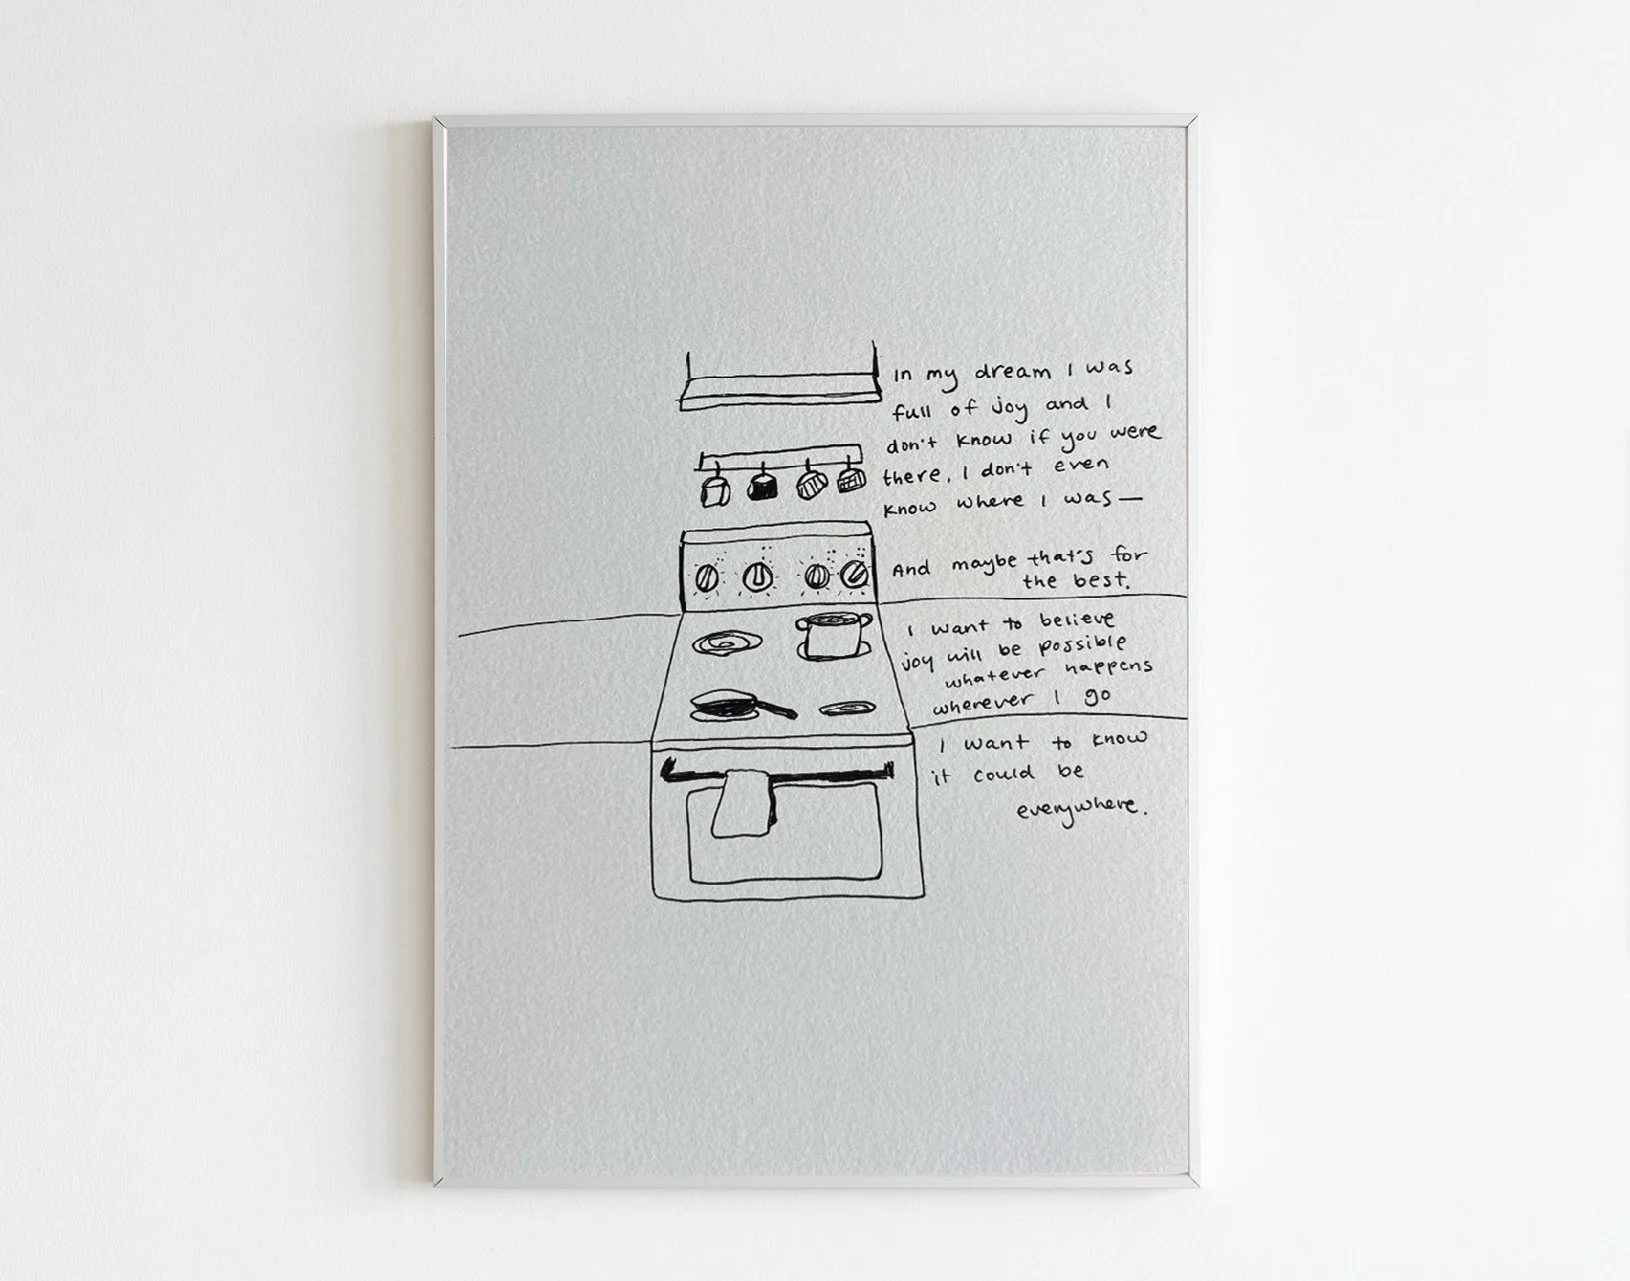 In my dream I was
full of joy and I
don't know if you were
there, I don't even
know where I was—
And maybe that's for
the best.
I want to believe
joy will be possible
whatever happens
wherever I go
I want to know
it could be
everywhere.